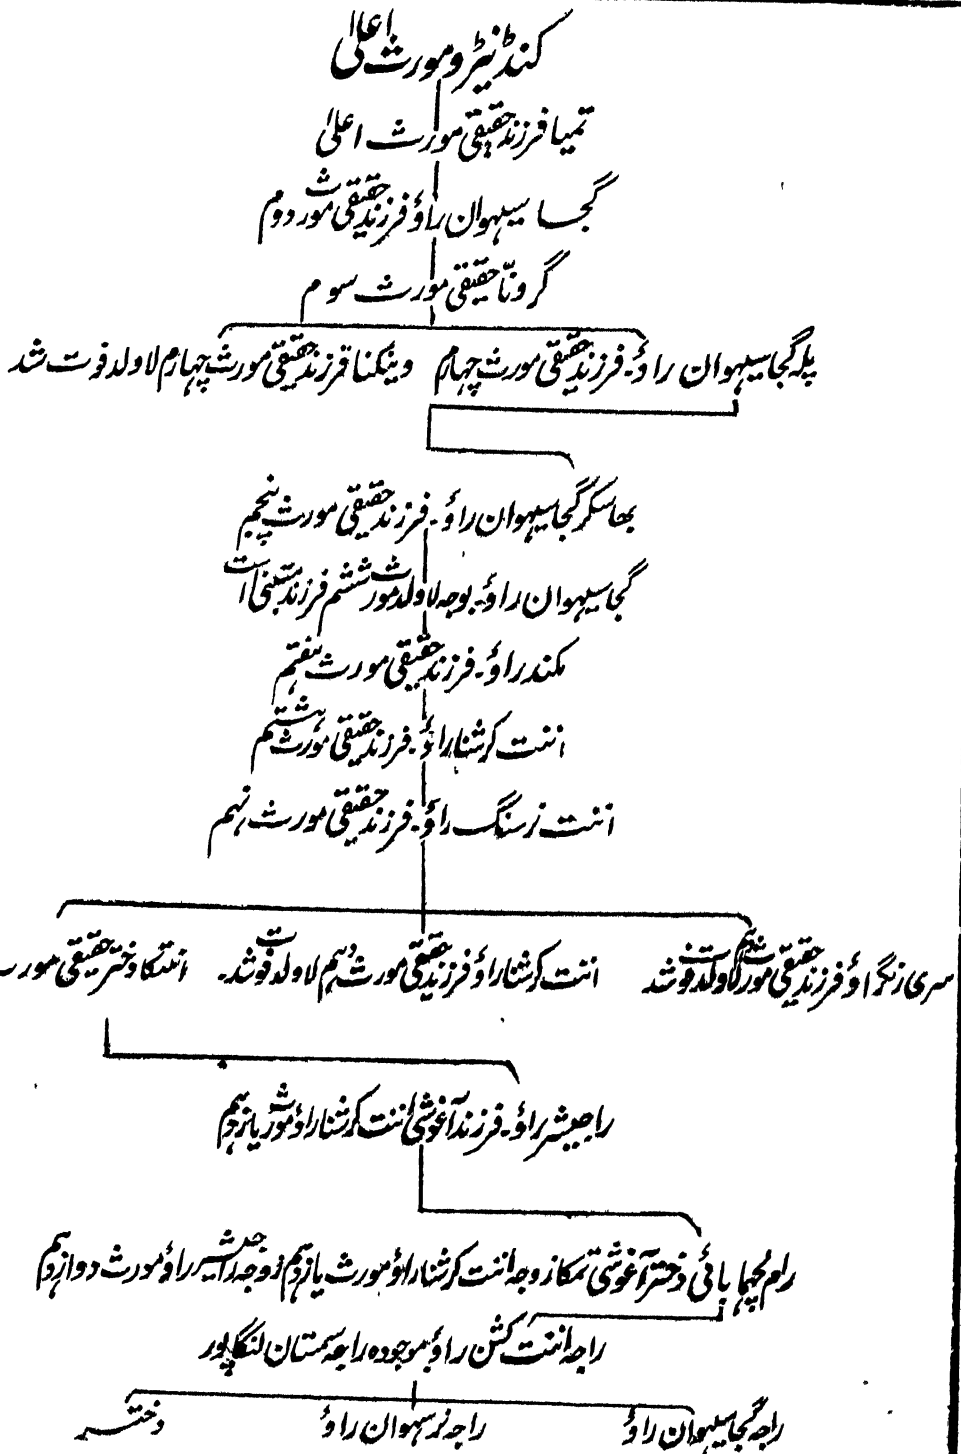 کنڈنیٹرو مورث اعلیٰ
تمیا فرزند حقیقی مورث اعلیٰ
گجا سیہوان راؤ فرزند حقیقی مورث دوم
گرونّا حقیقی مورث سوم
پلہ گجا سیہوان راؤ۔ فرزند حقیقی مورث چہارم
وینکنا فرزند حقیقی مورث چہارم لاولد فوت شد
بھاسکر گجا سیہوان راؤ۔ فرزند حقیقی مورث پنجم
گجا سیہوان راؤ۔ بوجہ لاولد مورث ششم فرزند متبنیٰ است
مکند راؤ۔ فرزند حقیقی مورث ہفتم
اننت کرشنا راؤ۔ فرزند حقیقی مورث ہشتم
اننت نرسنگ راؤ۔ فرزند حقیقی مورث نہم
سری رنگراؤ فرزند حقیقی مورث دہم لاولد فوت شد
اننت کرشنا راؤ فرزند حقیقی مورث دہم لاولد فوت شد۔
انتکا دختر حقیقی مورث
راجیشر راؤ۔ فرزند آغوشی اننت کرشنا راؤ مورث یازدہم
رام لچہما بائی دختر آغوشی تمکا زوجہ اننت کرشنا راؤ مورث یازدہم زوجہ راجیشر راؤ مورث دوازدہم
راجہ اننت کشن راؤ موجودہ راجہ سمستان لنگاپور
راجہ گجا سیہوان راؤ
راجہ نرسہوان راؤ
دختر